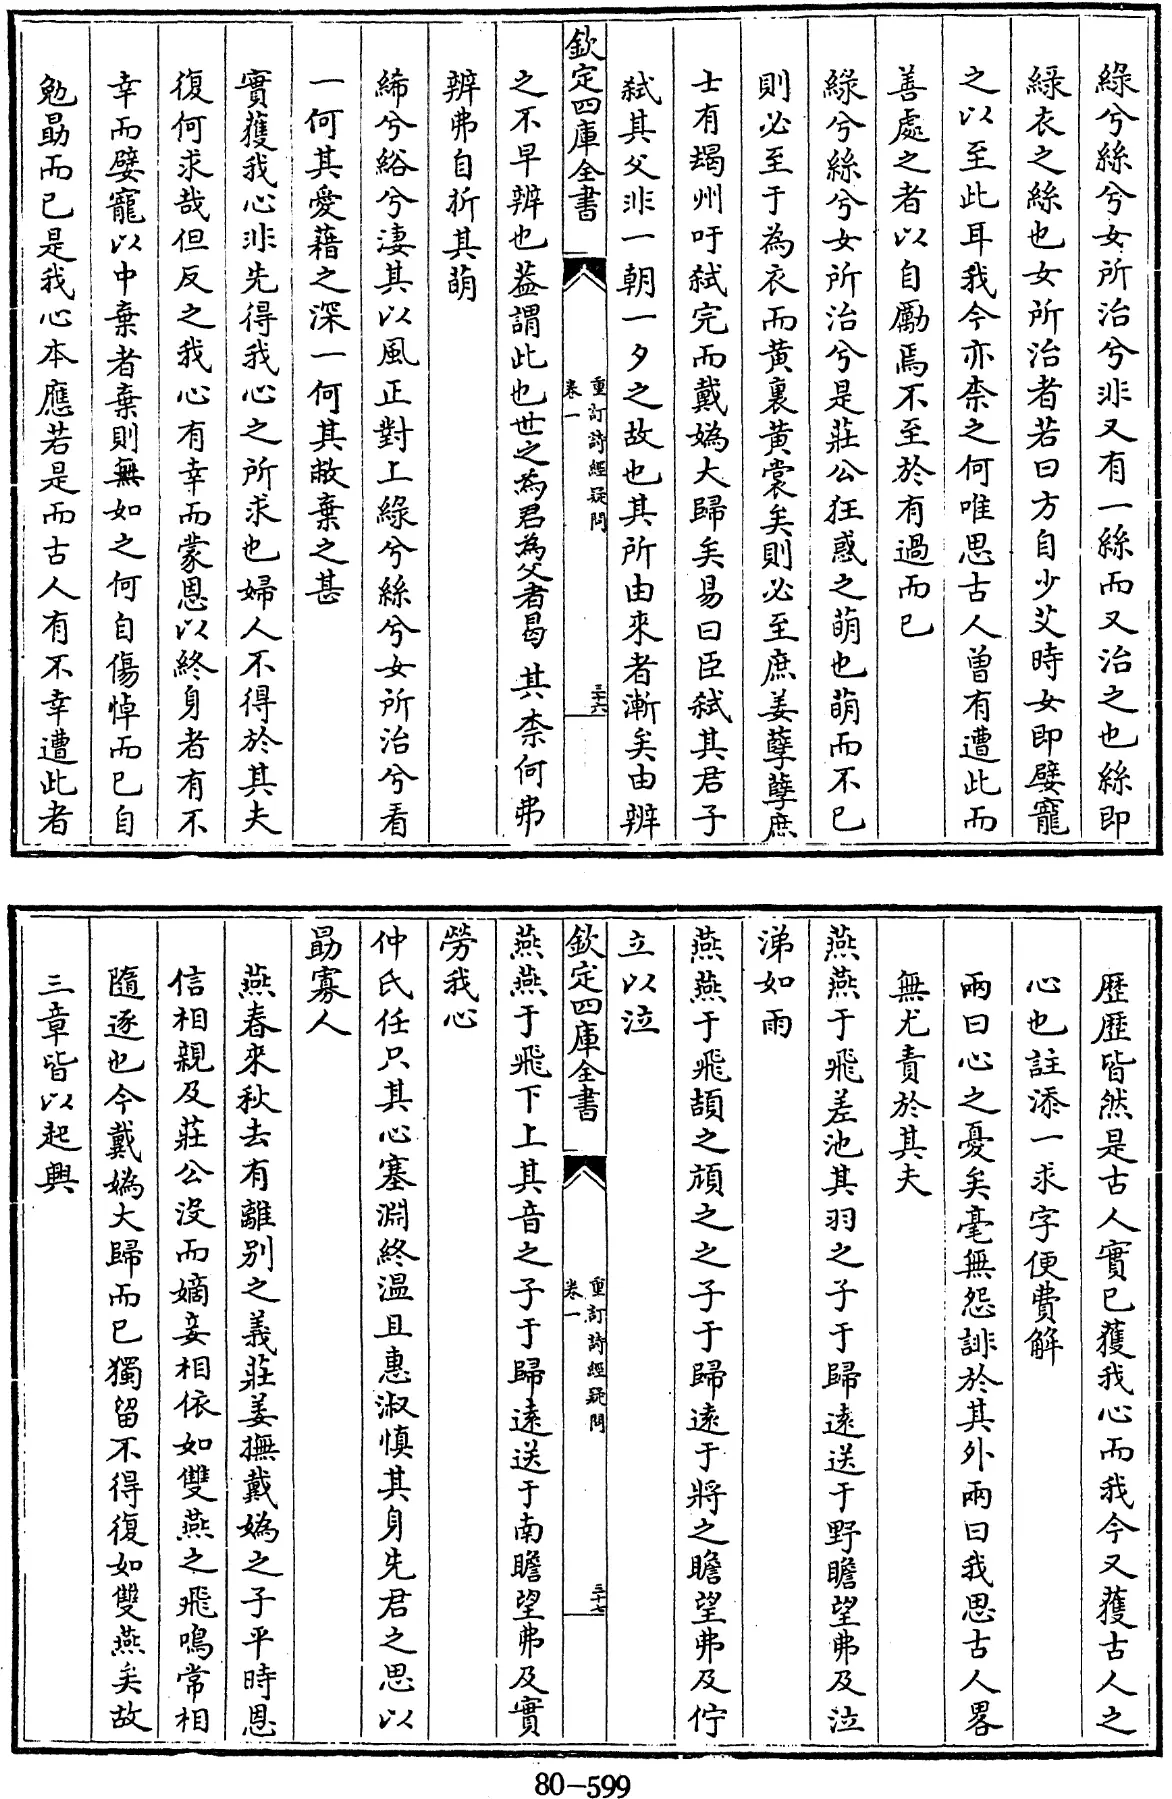 綠兮絲兮女所治兮非又有一絲而又治之也絲即
緑衣之絲也女所治者若曰方自少艾時女即嬖寵
之以至此耳我今亦柰之何唯思古人曾有遭此而
善處之者以自勵焉不至於有過而已
綠兮絲兮女所治兮是莊公狂惑之萌也萌而不已
則必至于為衣而黄裏黄裳矣則必至庶姜孽孽庶
士有朅州吁弑完而戴媯大歸矣易曰臣弑其君子
弑其父非一朝一夕之故也其所由來者漸矣由辨
欽定四庫全書
重訂詩經疑問
卷一
三十六
之不早辨也葢謂此也世之為君為父者曷其柰何弗
辨弗自折其萌
絺兮綌兮淒其以風正對上綠兮絲兮女所治兮看
一何其愛藉之深一何其敝棄之甚
實獲我心非先得我心之所求也婦人不得於其夫
復何求哉但反之我心有幸而蒙恩以終身者有不
幸而嬖寵以中棄者棄則無如之何自傷悼而已自
勉勗而已是我心本應若是而古人有不幸遭此者
歷歷皆然是古人實已獲我心而我今又獲古人之
心也註添一求字便費解
兩曰心之憂矣毫無怨誹於其外兩曰我思古人畧
無尤責於其夫
燕燕于飛差池其羽之子于歸遠送于野瞻望弗及泣
涕如雨
燕燕于飛頡之頏之之子于歸遠于將之瞻望弗及佇
立以泣
欽定四庫全書
重訂詩經疑問
卷一
三十七
燕燕于飛下上其音之子于歸遠送于南瞻望弗及實
勞我心
仲氏任只其心塞淵終温且惠淑慎其身先君之思以
勗寡人
燕春來秋去有離别之義莊姜撫戴媯之子平時恩
信相親及莊公沒而嫡妾相依如雙燕之飛鳴常相
隨逐也今戴媯大歸而已獨留不得復如雙燕矣故
三章皆以起興
80-599